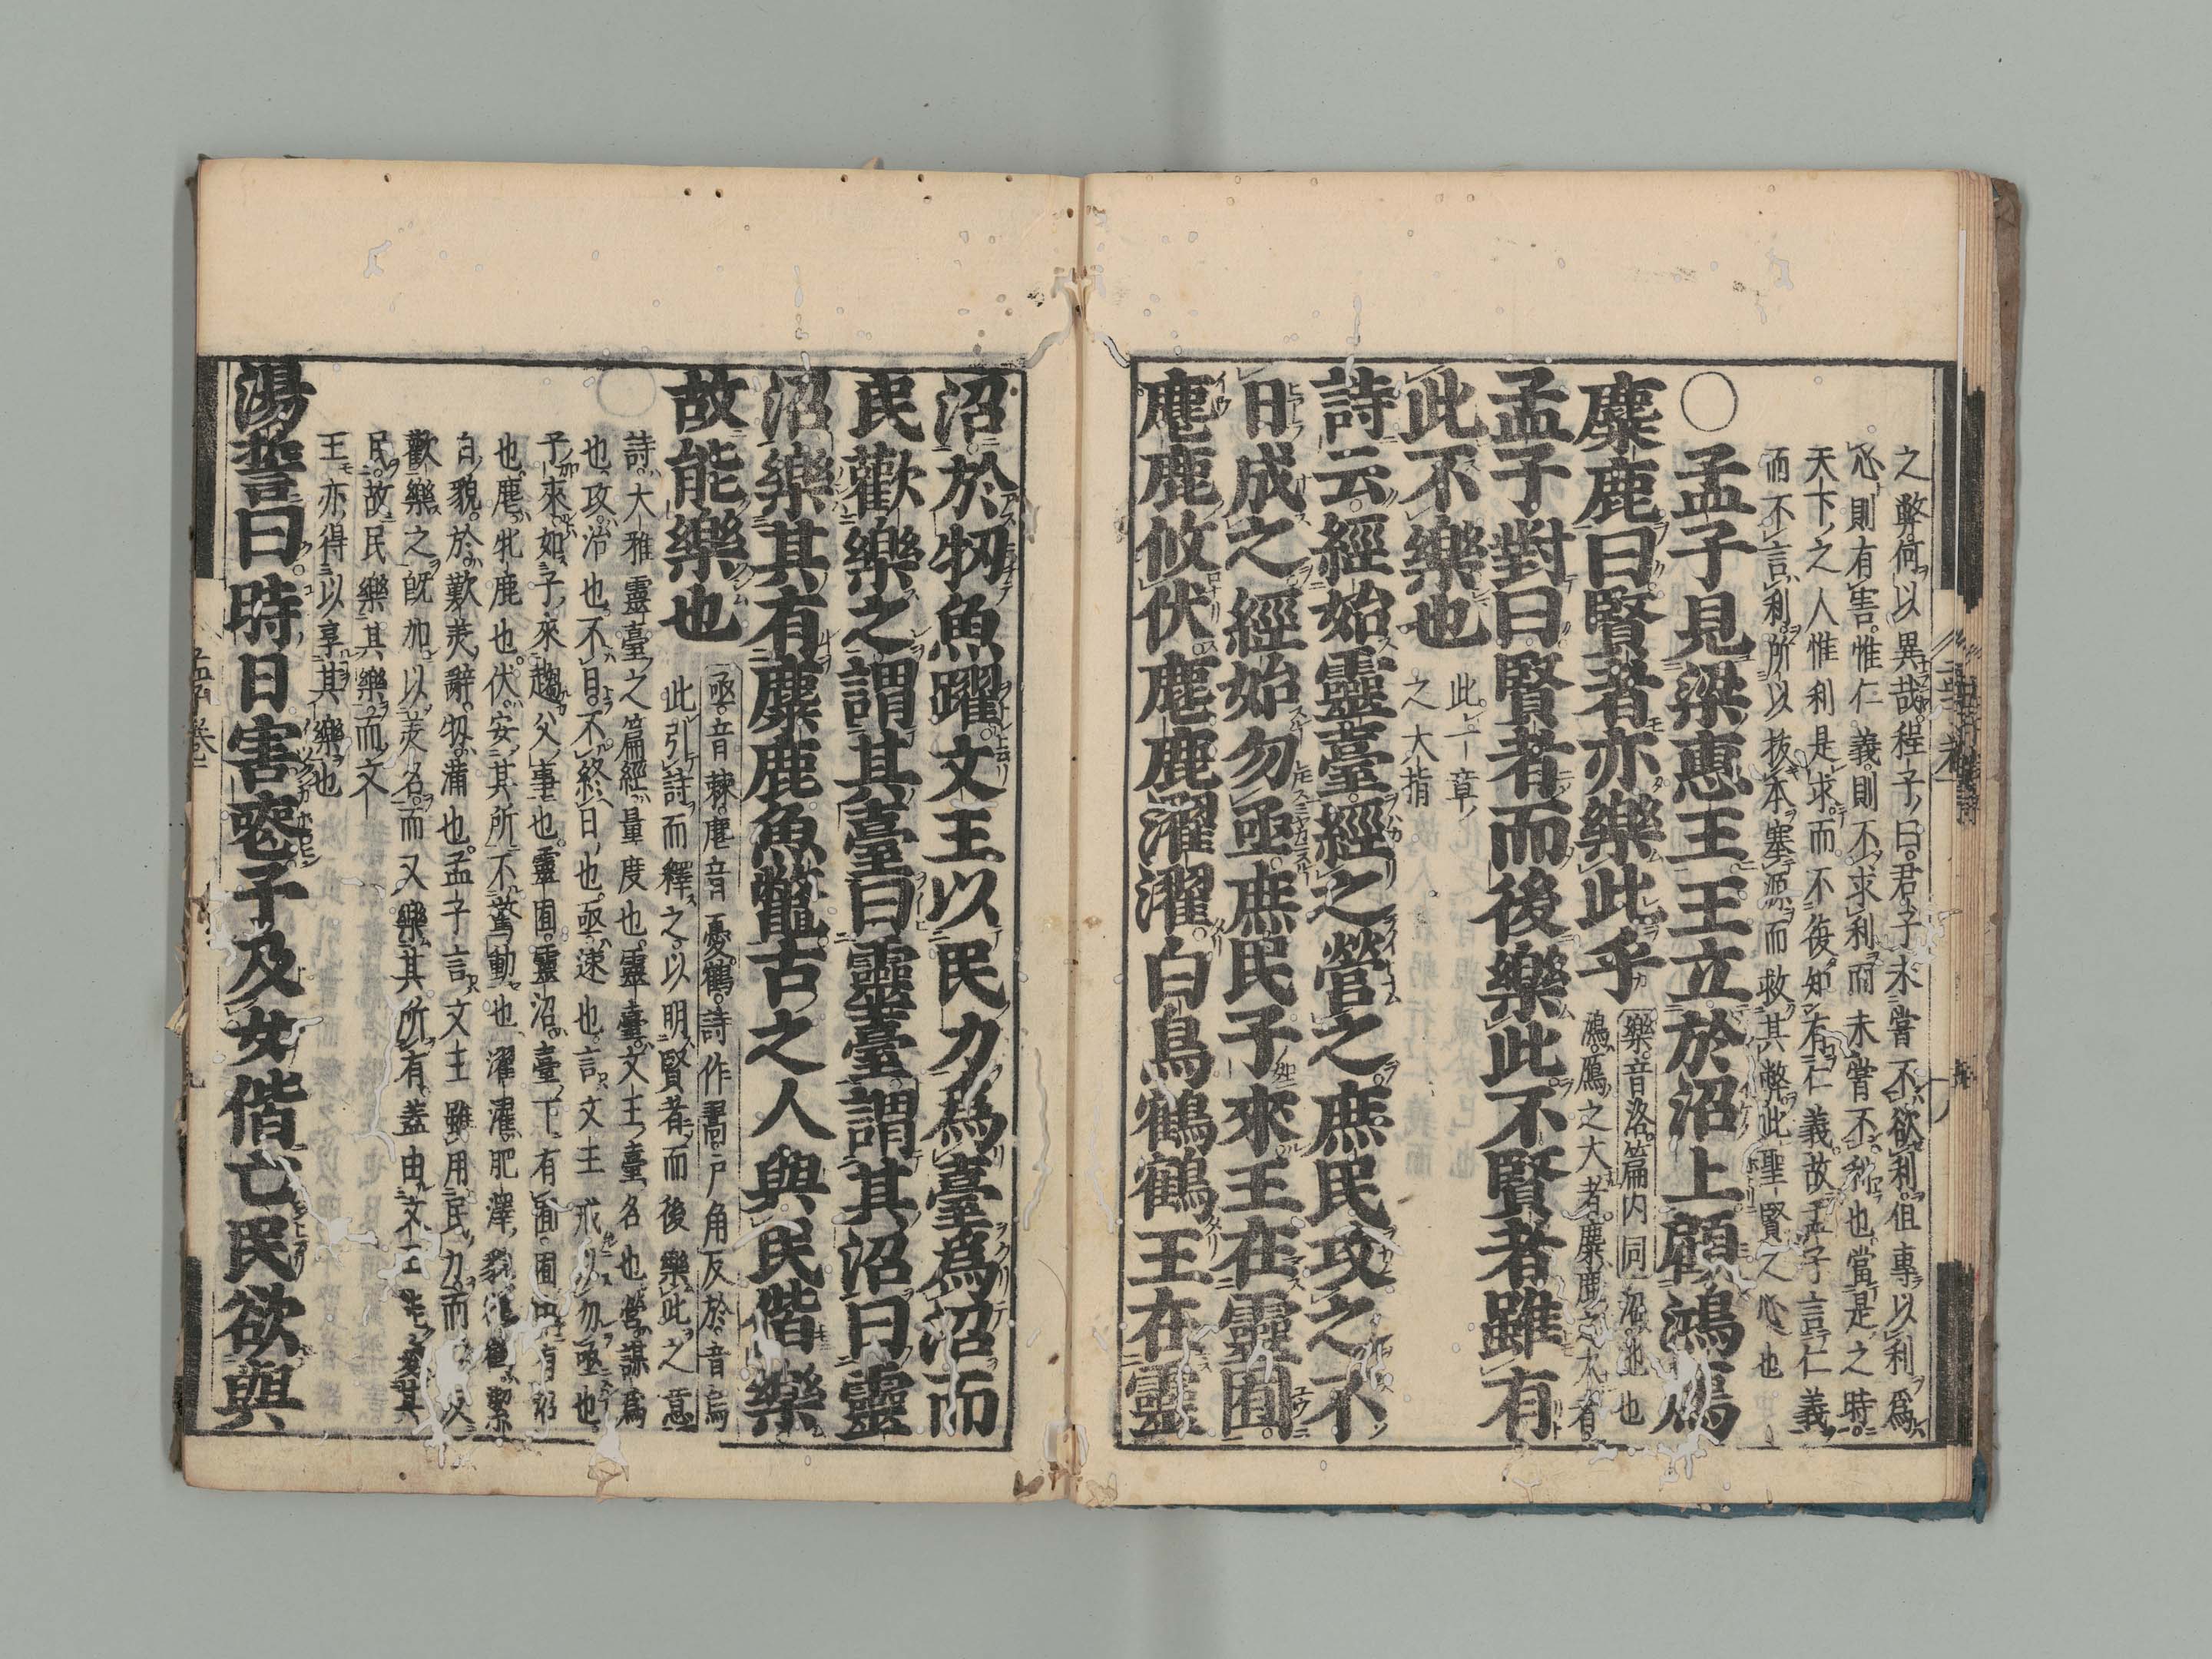 之弊何以異哉程子曰君子未嘗不欲利但專以利爲
心則有害惟仁義則不求利而未嘗不利也當是之時
天下之人惟利是求而不復知有仁義故孟子言仁義
而不言利所以拔本塞源而救其弊此聖賢之心也
○孟子見梁惠王王立於沼上顧鴻鴈
麋鹿曰賢者亦樂此乎
樂音洛篇内同○沼池也
鴻鴈之大者麋鹿之大者
孟子對曰賢者而後樂此不賢者雖有
此不樂也
此一章
之大指
詩云經始靈臺經之營之庶民攻之不
日成之經始勿亟庶民子來王在靈囿
麀鹿攸伏麀鹿濯濯白鳥鶴鶴王在靈
沼於牣魚躍文王以民力爲臺爲沼而
民歡樂之謂其臺曰靈臺謂其沼曰靈
沼樂其有麋鹿魚鼈古之人與民偕樂
故能樂也
亟音棘麀音憂鶴詩作翯戸角反於音烏
此引詩而釋之以明賢者而後樂此之意
詩大雅靈臺之篇經量度也靈臺文王臺名也營謀爲
也攻治也不日不終日也亟速也言文王戒以勿亟也
子來如子來趨父事也靈囿靈沼臺下有囿囿中有沼
也麀牝鹿也伏安其所不驚動也濯濯肥澤貌鶴鶴潔
白貌於歎美辭牣滿也孟子言文王雖用民力而民反
歡樂之既加以美名而又樂其所有蓋由文王能愛其
民故民樂其樂而文
王亦得以享其樂也
湯誓曰時日害喪予及女偕亡民欲與
孟子 卷一